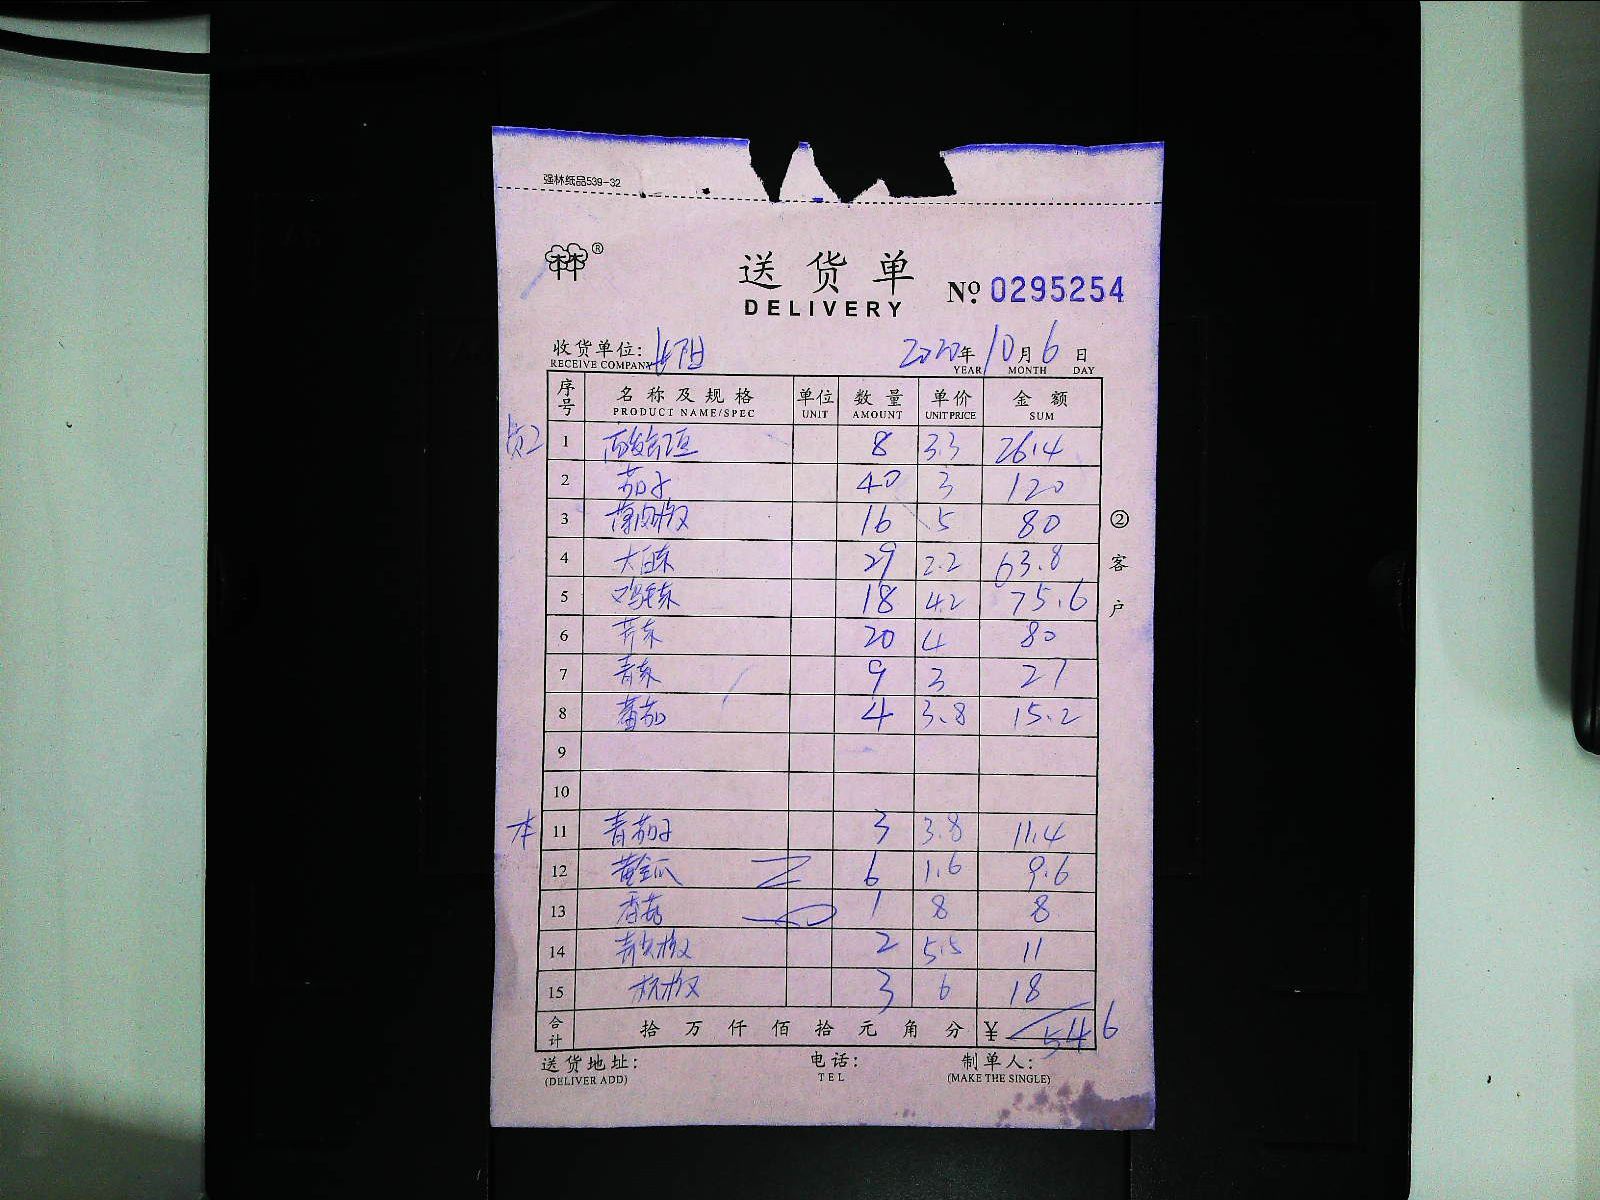 强林纸品539-32
®
送货单
DELIVERY
№ 0295254
收货单位:
RECEIVE COMPANY
2020年 10月 6日
YEAR MONTH DAY
序号 名称及规格 单位 数量 单价 金额
PRODUCT NAME/SPEC UNIT AMOUNT UNIT PRICE SUM
1 8 3.3 26.4
2 茄子 40 3 120
3 16 5 80
4 大白菜 29 2.2 63.8
5 鸡毛菜 18 4.2 75.6
6 芹菜 20 4 80
7 青菜 9 3 27
8 番茄 4 3.8 15.2
9
10
本 11 青茄子 3 3.8 11.4
12 黄金瓜 6 1.6 9.6
13 香菇 1 8 8
14 青尖椒 2 5.5 11
15 杭椒 3 6 18
合计 拾 万 仟 佰 拾 元 角 分 ¥ 546
送货地址: 电话: 制单人:
(DELIVER ADD) TEL (MAKE THE SINGLE)
②客户